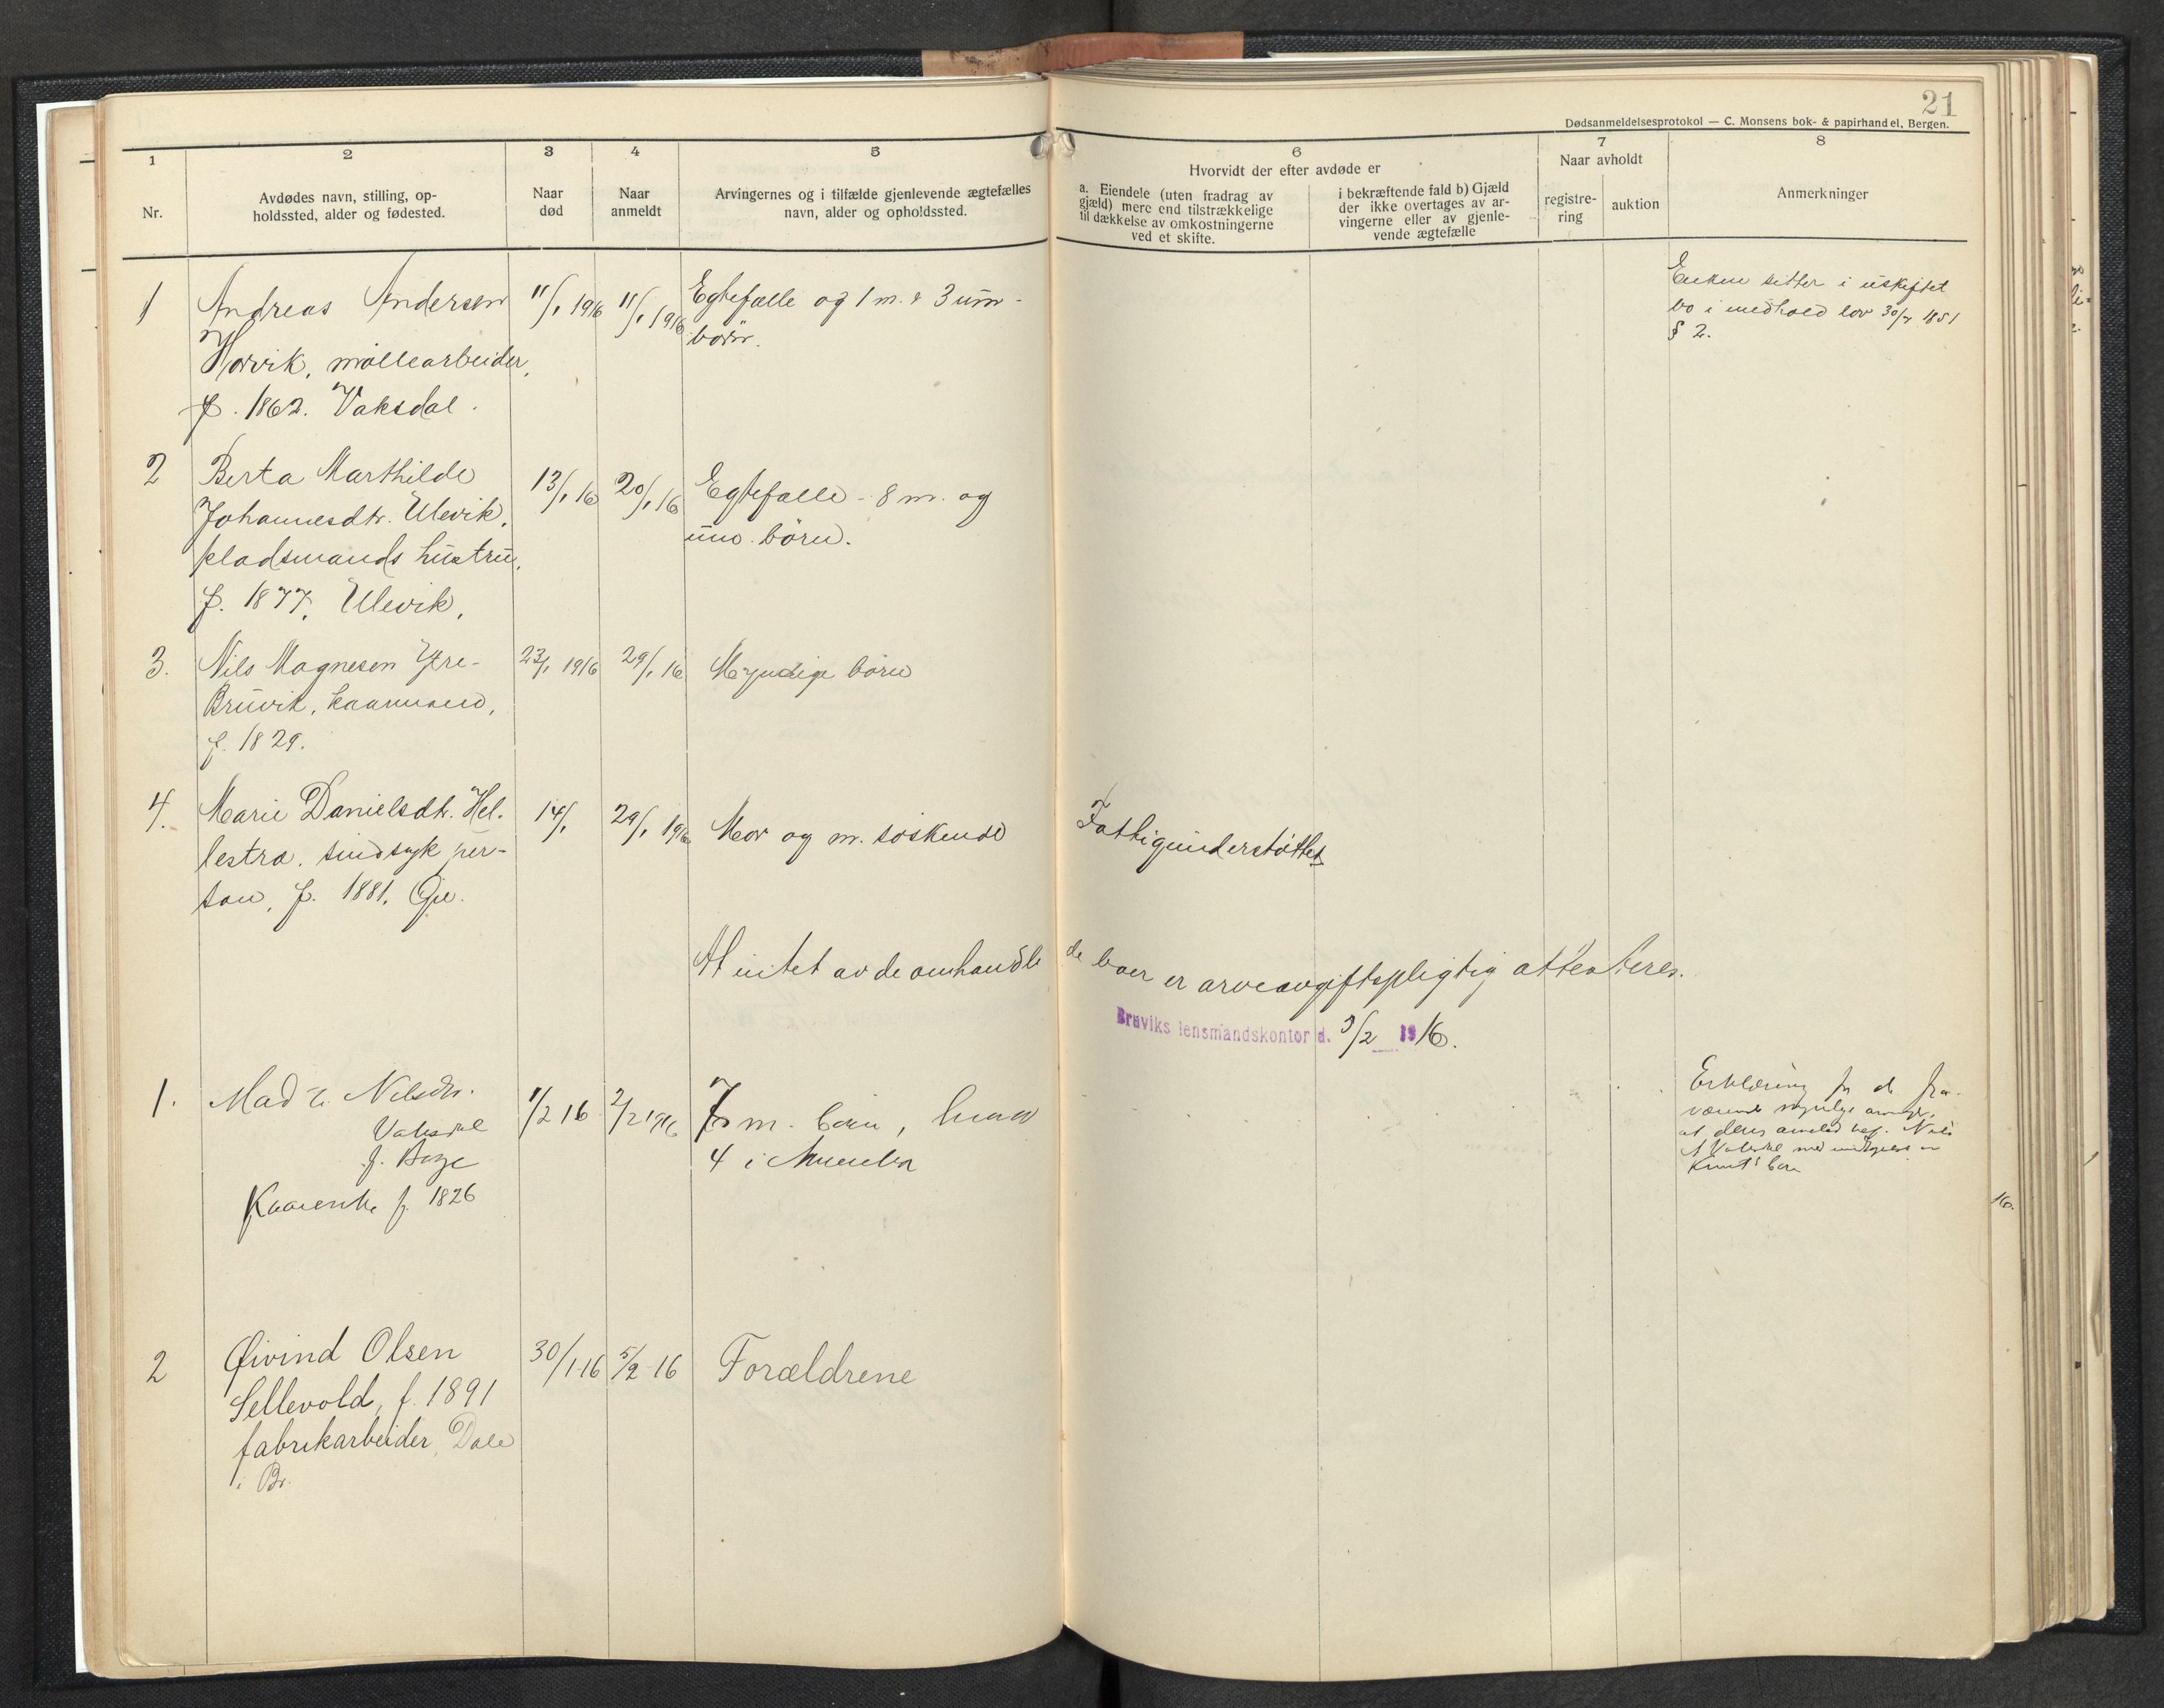 21
Dødsanmeldelsesprotokol — C. Monsens bok- & papirhandel, Bergen.
1
Nr.
2
Avdødes navn, stilling, op-
holdssted, alder og fødested.
3
Naar
død
4
Naar
anmeldt
5
Arvingernes og i tilfælde gjenlevende ægtefælles
navn, alder og opholdssted.
6
Hvorvidt der efter avdøde er
a. Eiendele (uten fradrag av
gjæld) mere end tilstrækkelige
til dækkelse av omkostningerne
ved et skifte.
i bekræftende fald b) Gjæld
der ikke overtages av ar-
vingerne eller av gjenle-
vende ægtefælle
7
Naar avholdt
registre-
ring
auktion
8
Anmerkninger
1
Andreas Andersen
Horvik, møllearbeider,
f. 1862. Vaksdal.
11/1 1916
11/1 1916
Egtefælle og 1 m. & 3 um-
børn.
Enken sitter i uskiftet
bo i medhold lov 30/7 1851
§ 2.
2
Berta Marthilde
Johannesdtr. Ulevik,
pladsmands hustru,
f. 1877, Ulevik,
13/1 16
20/1 16
Egtefælle - 8 m. og
um. børn.
3.
Nils Magnesen Ytre-
Bruvik, kaarmand,
f. 1829.
23/1 1916
29/1 16
Myndige børn
4.
Marie Danielsdtr. Hel-
lestra. sindsyk per-
son, f. 1881.
14/1
29/1 1916
Mor og m. søskende
Fattigunderstøttet
At intet av de omhandle
de boer er arveavgiftspligtig attesteres.
Bruviks lensmandskontor d. 3/2 1916.
1.
Nilsdtr.
Vaksdal
f.
Kaarenke f. 1826
1/2 16
2/2 1916
7 m. børn, hvorav
4 i Amerika
Erklæring
Nils
2
Øivind Olsen
Sellevold, f. 1891
fabrikarbeider, Dale
i Br.
30/1 16
5/2 16
Forældrene
16.